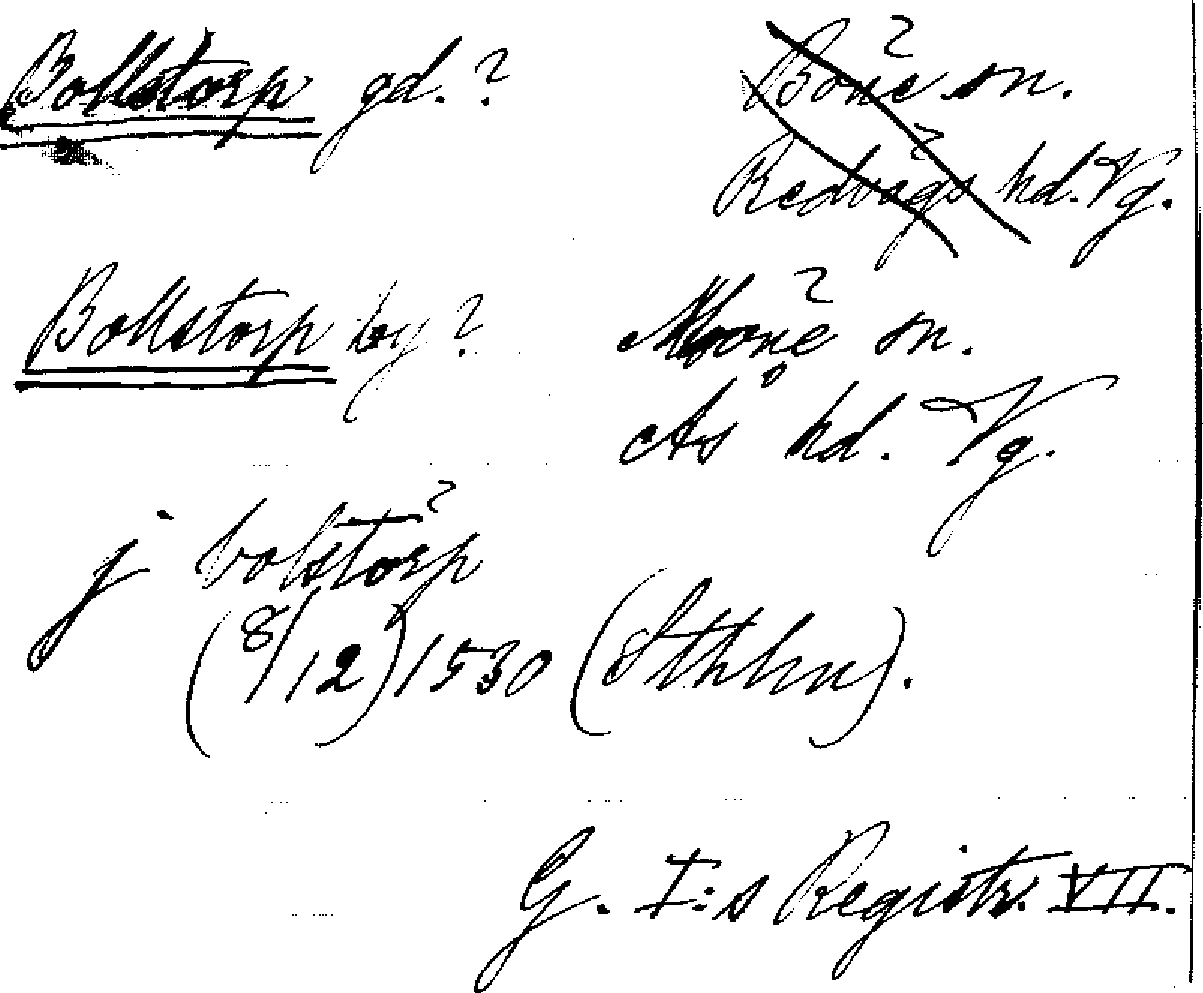 Bollstorp gd.? Böne? sn.
Redvägs? hd. Vg.
Bollstorp by? Mone? sn.
Ås hd. Vg.
j bolstorp?
(8/12) 1530 (Sthlm).
G. I:s Registr. VII.